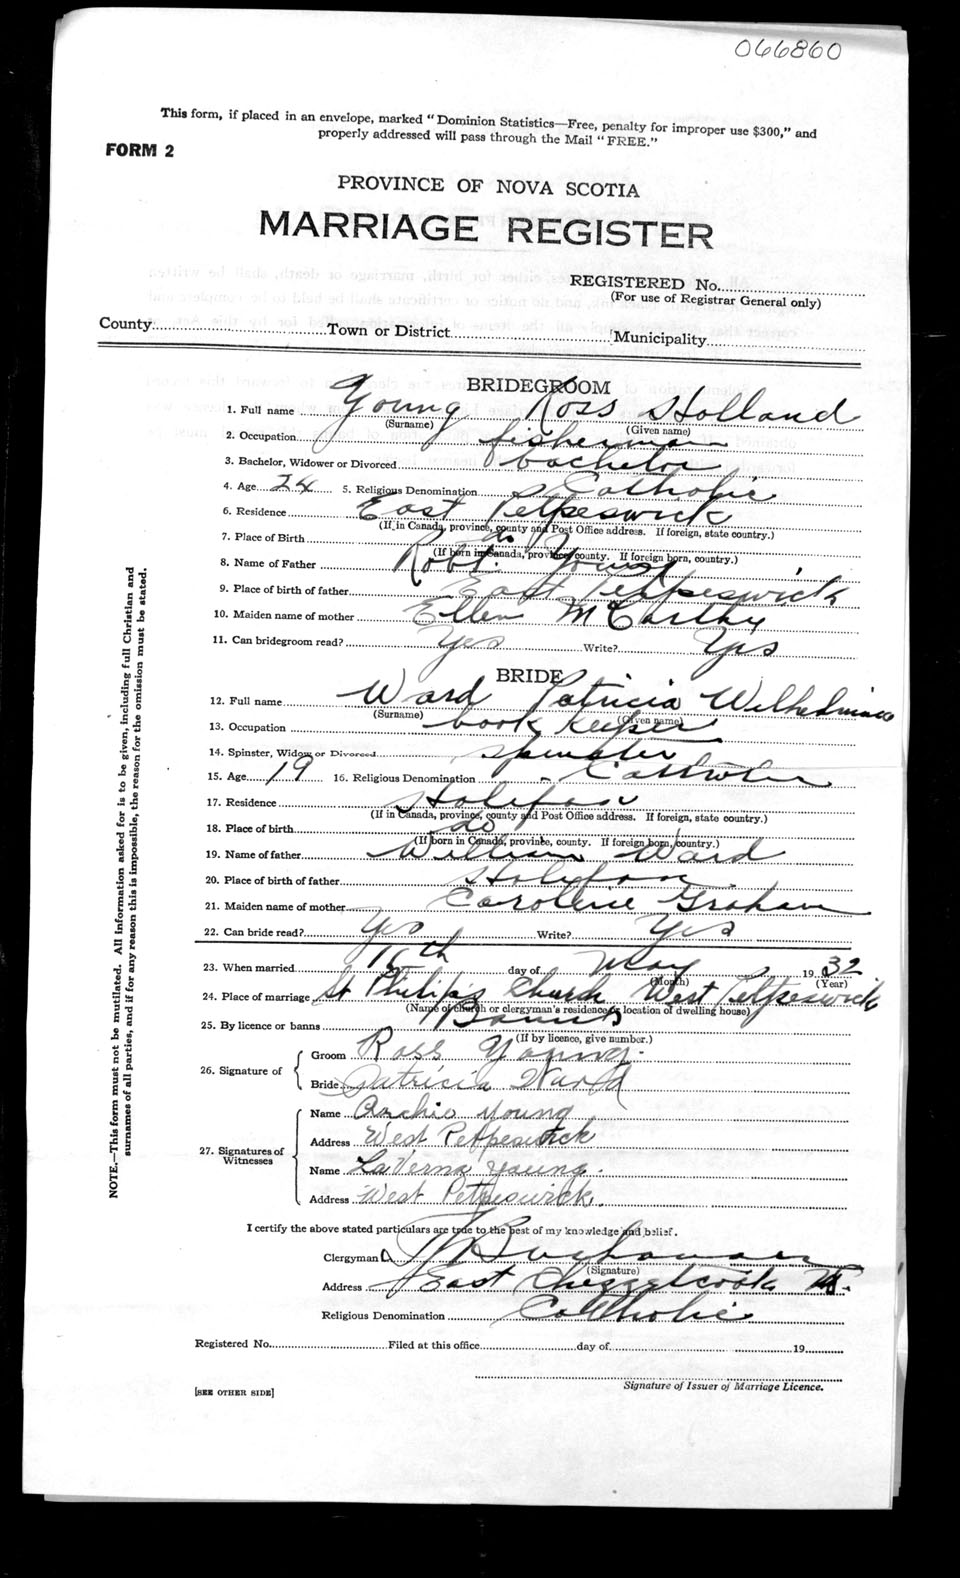 066860
This form, if placed in an envelope, marked "Dominion Statistics—Free, penalty for improper use $300," and
properly addressed will pass through the Mail "FREE."
FORM 2
PROVINCE OF NOVA SCOTIA
MARRIAGE REGISTER
REGISTERED No.
(For use of Registrar General only)
County Town or District Municipality
BRIDEGROOM
1. Full name Young Ross Holland
(Surname) (Given name)
2. Occupation fisherman
3. Bachelor, Widower or Divorced bachelor
4. Age 24 5. Religious Denomination Catholic
6. Residence East Petpeswick
(If in Canada, province, county and Post Office address. If foreign, state country.)
7. Place of Birth do
(If born in Canada, province county. If foreign born, country.)
8. Name of Father Robt. Young
9. Place of birth of father East Petpeswick
10. Maiden name of mother Ellen McCarthy
11. Can bridegroom read? Yes Write? Yes
BRIDE
12. Full name Ward Patricia Wilhelmina
(Surname) (Given name)
13. Occupation book keeper
14. Spinster, Widow or Divorced spinster
15. Age 19 16. Religious Denomination Catholic
17. Residence Halifax
(If in Canada, province, county and Post Office address. If foreign, state country.)
18. Place of birth do
(If born in Canada, province, county. If foreign born, country.)
19. Name of father William Ward
20. Place of birth of father Halifax
21. Maiden name of mother Caroline Graham
22. Can bride read? Yes Write? Yes
23. When married 16th day of May 1932
(Month) (Year)
24. Place of marriage St Philip's Church West Petpeswick
(Name of church or clergyman's residence or location of dwelling house)
25. By licence or banns Banns
(If by licence, give number.)
26. Signature of
Groom Ross Young.
Bride Patricia Ward
27. Signatures of Witnesses
Name Archie Young
Address West Petpeswick
Name LaVerna Young.
Address West Petpeswick.
I certify the above stated particulars are true to the best of my knowledge and belief.
Clergyman
(Signature)
Address East Chezzetcook
Religious Denomination Catholic
Registered No. Filed at this office day of 19
Signature of Issuer of Marriage Licence.
[SEE OTHER SIDE]
NOTE.—This form must not be mutilated. All Information asked for is to be given, including full Christian and
surnames of all parties, and if for any reason this is impossible, the reason for the omission must be stated.